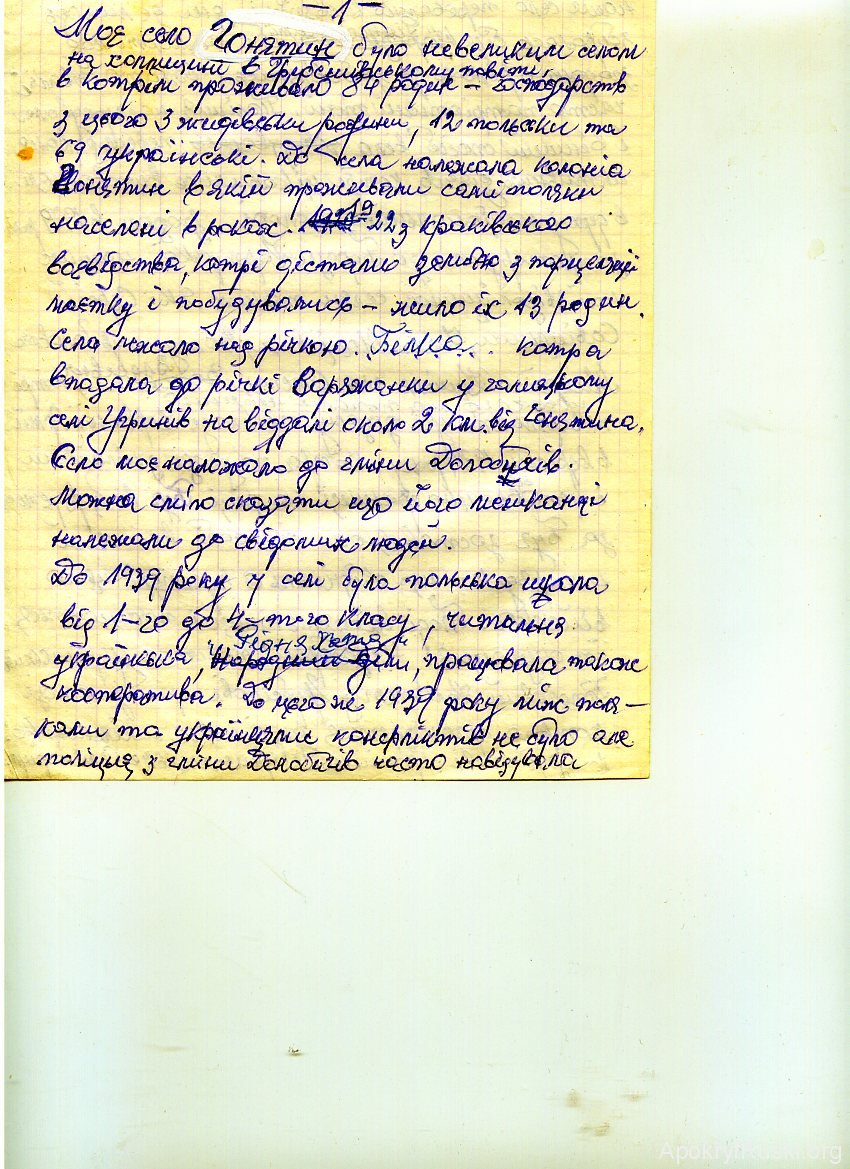 – 1 –
Моє село Гонятин було невеликим селом
на холмщині в Грубешівському повіті,
в котрім проживало 84 родин – господарств
з цього 3 жидівськи родини, 12 польски та
69 українські. До села належала колоніа
Гонятин в якій проживали самі поляки
населені в роках. 1922 з краківського
воєвідства, котрі дістали землю з парцеляції
маєтку і побудувались – жило їх 13 родин.
Села лежало над річкою. Білка.. котра
впадала до річкі Варяжанки у галицькому
селі Угринів на віддалі около 2 км. від Гонятина.
Село моє належало до гміни Долобичів.
Можна сміло сказати що його мешканці
належали до свідомих людей.
До 1939 року у селі була польська школа
від 1-го до 4-того класу, читальня
українська, "Рідна Хата", працювала також
кооператива. До цього же 1939 року між поля–
ками та українцями конфліктів не було але
поліция з гміни Долобичів часто навідувала
Apokryfruski.org